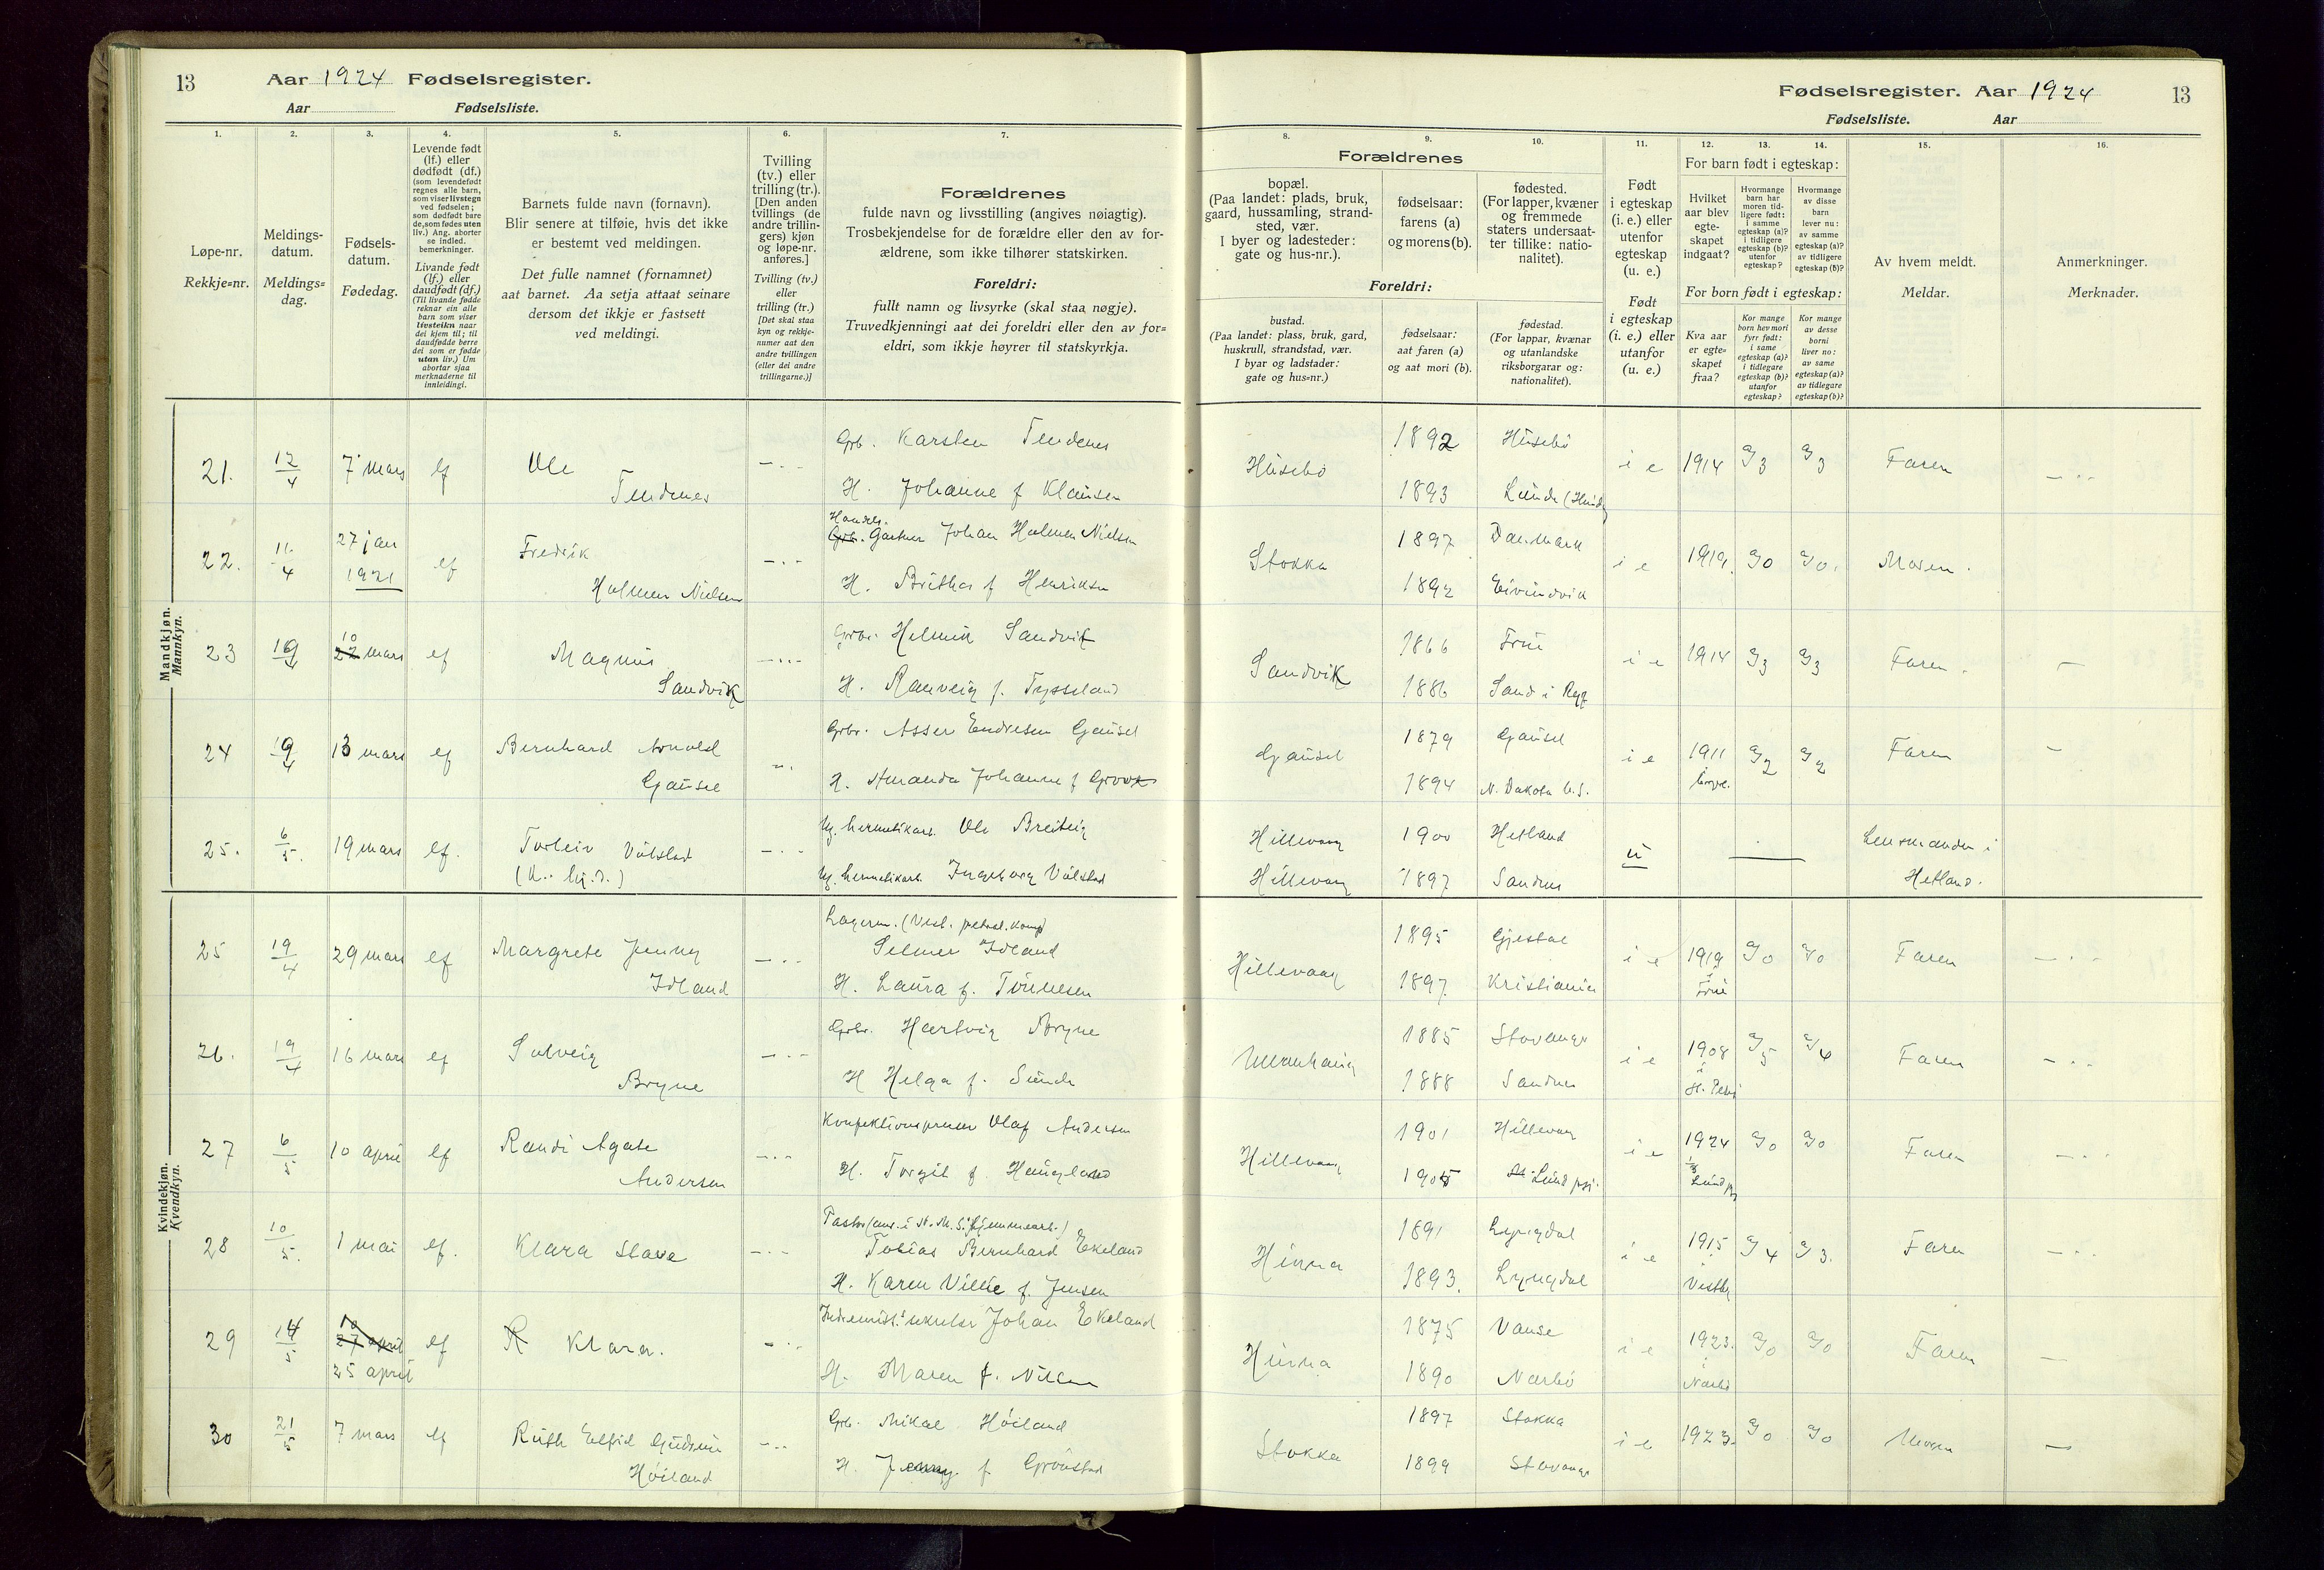 13 Aar 1924 Fødselsregister.
Aar Fødselsliste.
Fødselsregister. Aar 1924 13
Fødselsliste. Aar
1. 2. 3. 4. 5. 6. 7. 8. 9. 10. 11. 12. 13. 14. 15. 16.
Løpe-nr.
Rekkje=nr.
Meldings-
datum.
Meldings=
dag.
Fødsels-
datum.
Fødedag.
Levende født
(lf.) eller
dødfødt (df.)
(som levendefødt
regnes alle barn,
som viser livstegn
ved fødselen;
som dødfødt bare
de, som fødes uten
liv.) Ang. aborter
se indled.
bemerkninger.
Livande født
(lf.) eller
daudfødt (df.)
(Til livande fødde
reknar ein alle
barn som viser
livsteikn naar
dei kjem til; til
daudfødde berre
dei som er fødde
utan liv.) Um
abortar sjaa
merknaderne til
innleidingi.
Barnets fulde navn (fornavn).
Blir senere at tilføie, hvis det ikke
er bestemt ved meldingen.
Det fulle namnet (fornamnet)
aat barnet. Aa setja attaat seinare
dersom det ikkje er fastsett
ved meldingi.
Tvilling
(tv.) eller
trilling (tr.).
[Den anden
tvillings (de
andre trillin-
gers) kjøn
og løpe-nr.
anføres.]
Tvilling (tv.)
eller
trilling (tr.)
[Det skal staa
kyn og rekkje-
numer aat den
andre tvillingen
(eller dei andre
trillingarne.)]
Forældrenes
fulde navn og livsstilling (angives nøiagtig).
Trosbekjendelse for de forældre eller den av for-
ældrene, som ikke tilhører statskirken.
Foreldri:
fullt namn og livsyrke (skal staa nøgje).
Truvedkjenningi aat dei foreldri eller den av for=
eldri, som ikkje høyrer til statskyrkja.
Forældrenes
bopæl.
(Paa landet: plads, bruk,
gaard, hussamling, strand-
sted, vær.
I byer og ladesteder:
gate og hus-nr.).
fødselsaar:
farens (a)
og morens (b).
fødested.
(For lapper, kvæner
og fremmede
staters undersaat-
ter tillike: natio-
nalitet).
Foreldri:
bustad.
(Paa landet: plass, bruk, gard,
huskrull, strandstad, vær.
I byar og ladstader:
gate og hus-nr.)
fødselsaar:
aat faren (a)
og aat mori (b).
fødestad.
(For lappar, kvænar
og utanlandske
riksborgarar og:
nationalitet).
Født
i egteskap
(i. e.) eller
utenfor
egteskap
(u. e.)
Født
i egteskap
(i. e.) eller
utanfor
(u. e.)
For barn født i egteskap:
Hvilket
aar blev
egte-
skapet
indgaat?
Hvormange
barn har
moren tid-
ligere født:
i samme
egteskap (a)?
i tidligere
egteskap (b)?
utenfor
egteskap?
Hvormange
av disse
barn
lever nu:
av samme
egteskap (a)?
av tidligere
egteskap (b)?
For born født i egteskap:
Kva aar
er egte=
skapet
fraa?
Kor mange
born hev mori
fyrr født:
i same
egteskap (a)?
i tidlegare
egteskap (b)?
utanfor
egteskap?
Kor mange
av desse
borni
liver no:
av same
egteskap (a)?
av tidlegare
egteskap (b)?
Av hvem meldt.
Meldar.
Anmerkninger.
Merknader.
Mandkjøn.
Mannkyn.
21. 12/4 7 mars lf Ole Tendenes
Grb. Karsten Tendenes
H. Johanne f Klausen
Husebø 1892 Husebø
1893 Lunde
i e 1914 3 3 Faren
22. 11/4 27 jan 1921 lf Fredrik Holmen Nielsen
Handels. Gartner Johan Holmen Nielsen
H. Britha f Henriksen
Stokka 1897 Danmark
1892 Eivindvik
i e 1919. 0 0. Moren.
23 mars lf Magnus Sandvik
Grbr. Helmik Sandvik
H. Ranveig f. Tysseland
Sandvik 1866 Frue
1886 Sand i Ryf
i e 1914 3 3 Faren.
24 19/4 13 mars lf Bernhard Arnold Gausel
Grbr. Asser Endresen Gausel
H. Amanda Johanne f
Gausel 1879 Gausel
1894 N. Dakota U.S.
i e 1911 2 2 Faren
25. 6/5. 19 mars lf. Torleiv Vølstad
Ug. hermetikarb. Ole Breiteig
Ug. hermetikarb. Ingeborg Vølstad
Hillevaag 1900 Hetland
Hillevaag 1897 Sandnes
u Lensmanden i
Hetland.
Kvindekjøn.
Kvendkyn.
25 19/4 29 mars lf Margrete Jenny Idland
Lagerm. (Vest. petrol. komp)
Selmer Idland
H. Laura f. Tønnesen
Hillevaag 1895 Gjestal
1897. Kristiania
i e 1919 i Frue 0 0 Faren
26. 19/4 16 mars lf Solveig Bryne
Grbr. Hartvig Bryne
H Helga f. Sunde
1885 Stavanger
1888 Sandnes
i e 1908 i St. Petri 5 4 Faren
27 6/5 10 april lf Randi Agate Andersen
Olaf Andersen
H. Torgil f. Haugland
Hillevaag 1901 Hillevaag
1905 Lund
i e 1924 0 0 Faren
28 10/5. 1 mai lf. Klara Slava
Tobias Bernhard Ekeland
H. Karen Villie f. Jensen
Hinna 1891 Lyngdal
1893. Lyngdal
i e 1915 4 3. Faren
29 14/5 25 april lf Klara.
Johan Ekeland
H. Maren f. Nilsen
Hinna 1875 Vanse
1890 Nærbø
i e 1923. i Nærbø 0 0 Faren
30 21/5 7 mars lf Ruth Elfrid Gudrun Høiland
Grb. Mikal Høiland
H. Jenny f Grønstad
Stokka 1897 Stokka
1899 Stavanger
i e 1923. 0 0 Moren